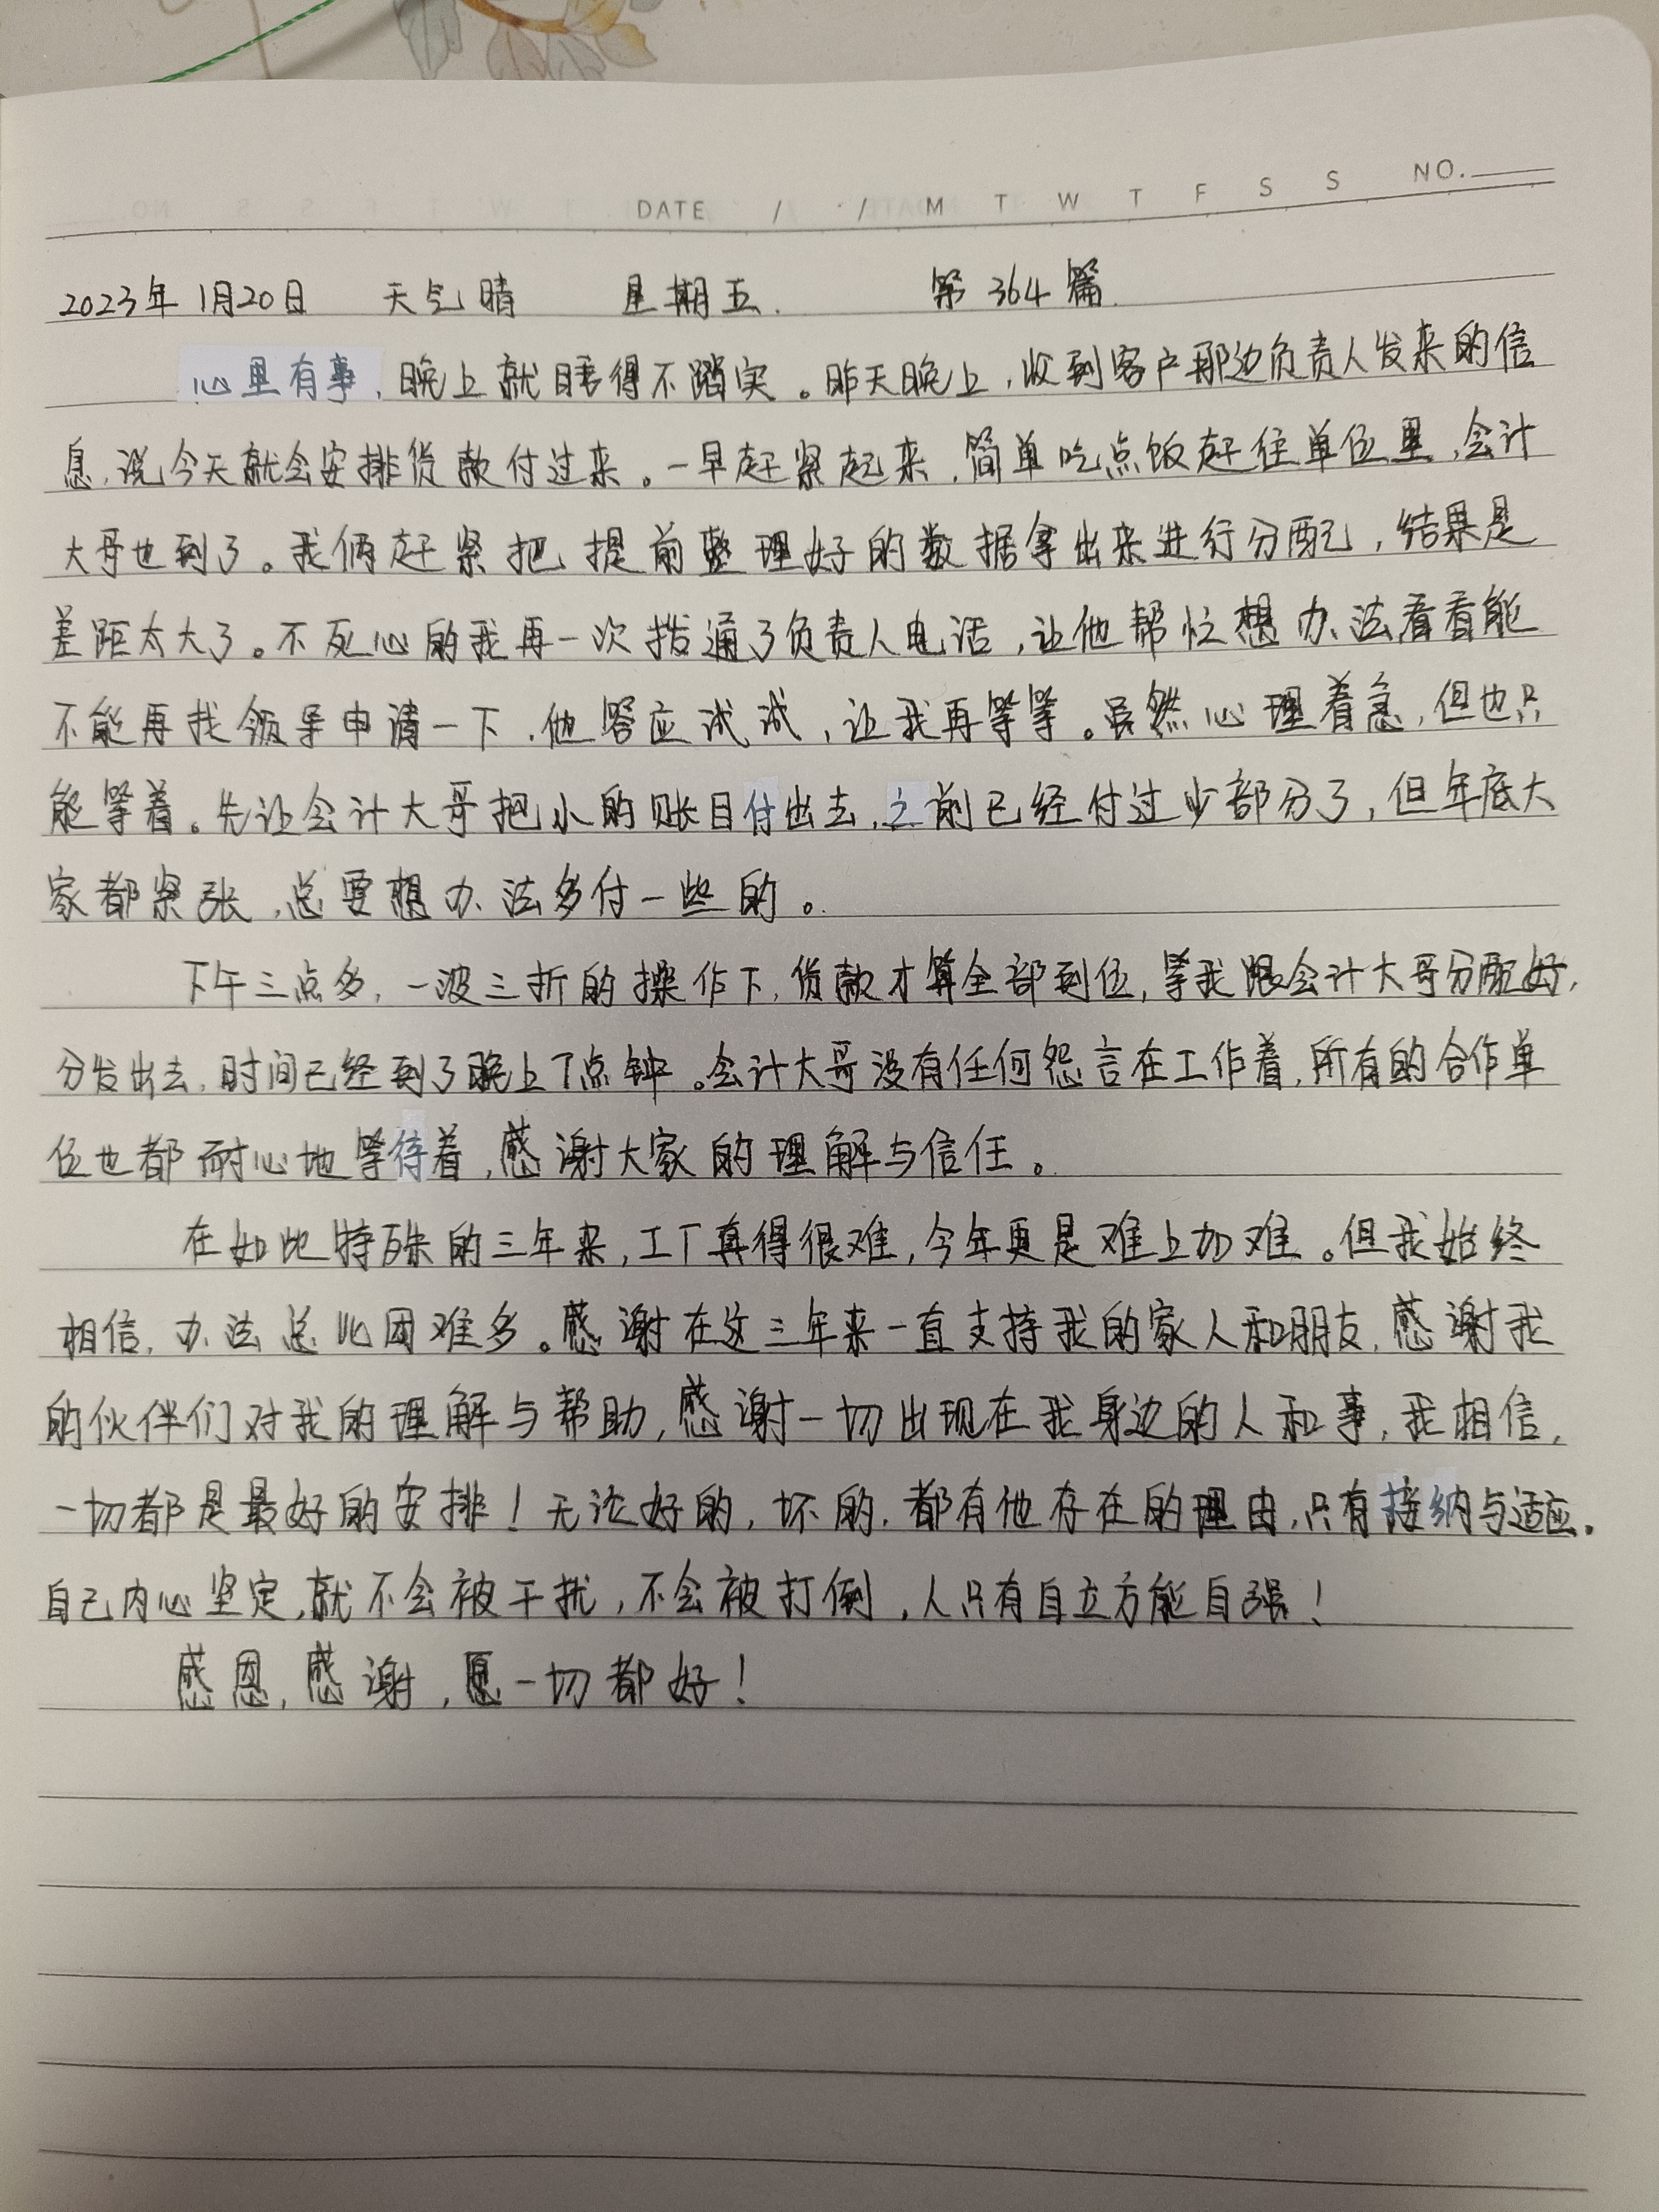 DATE / / M T W T F S S NO.
2023年1月20日 天气晴 星期五. 第364篇.
心里有事,晚上就睡得不踏实。昨天晚上,收到客户那边负责人发来的信
息,说今天就会安排货款付过来。一早赶紧起来,简单吃点饭赶往单位里,会计
大哥也到了。我俩赶紧把提前整理好的数据拿出来进行分配,结果是
差距太大了。不死心的我再一次拨通了负责人电话,让他帮忙想办法看看能
不能再找领导申请一下,他答应试试,让我再等等。虽然心理着急,但也只
能等着。先让会计大哥把小的账目付出去,之前已经付过少部分了,但年底大
家都紧张,总要想办法多付一些的。
下午三点多,一波三折的操作下,货款才算全部到位,等我跟会计大哥分配好,
分发出去,时间已经到了晚上7点钟。会计大哥没有任何怨言在工作着,所有的合作单
位也都耐心地等待着,感谢大家的理解与信任。
在如此特殊的三年来,工厂真得很难,今年更是难上加难。但我始终
相信,办法总比困难多。感谢在这三年来一直支持我的家人和朋友,感谢我
的伙伴们对我的理解与帮助,感谢一切出现在我身边的人和事,我相信,
一切都是最好的安排!无论好的,坏的,都有他存在的理由,只有接纳与适应。
自己内心坚定,就不会被干扰,不会被打倒,人只有自立方能自强!
感恩,感谢,愿一切都好!